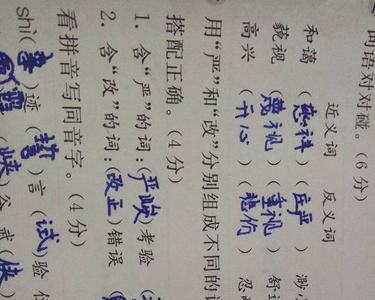 词语对对碰。(6分)
近义词 反义词
和蔼 (慈祥) (庄严) 渺小
藐视 (蔑视) (重视) 舒
高兴 (开心) (悲伤) 忍
用“严”和“改”分别组成不同的词
搭配正确。(4分)
1. 含“严”的词:(严峻)考验
2. 含“改”的词:(改正)错误
看拼音写同音字。(4分)
shì(事)迹 (誓)言 (试)验
(峡)谷 武(侠)